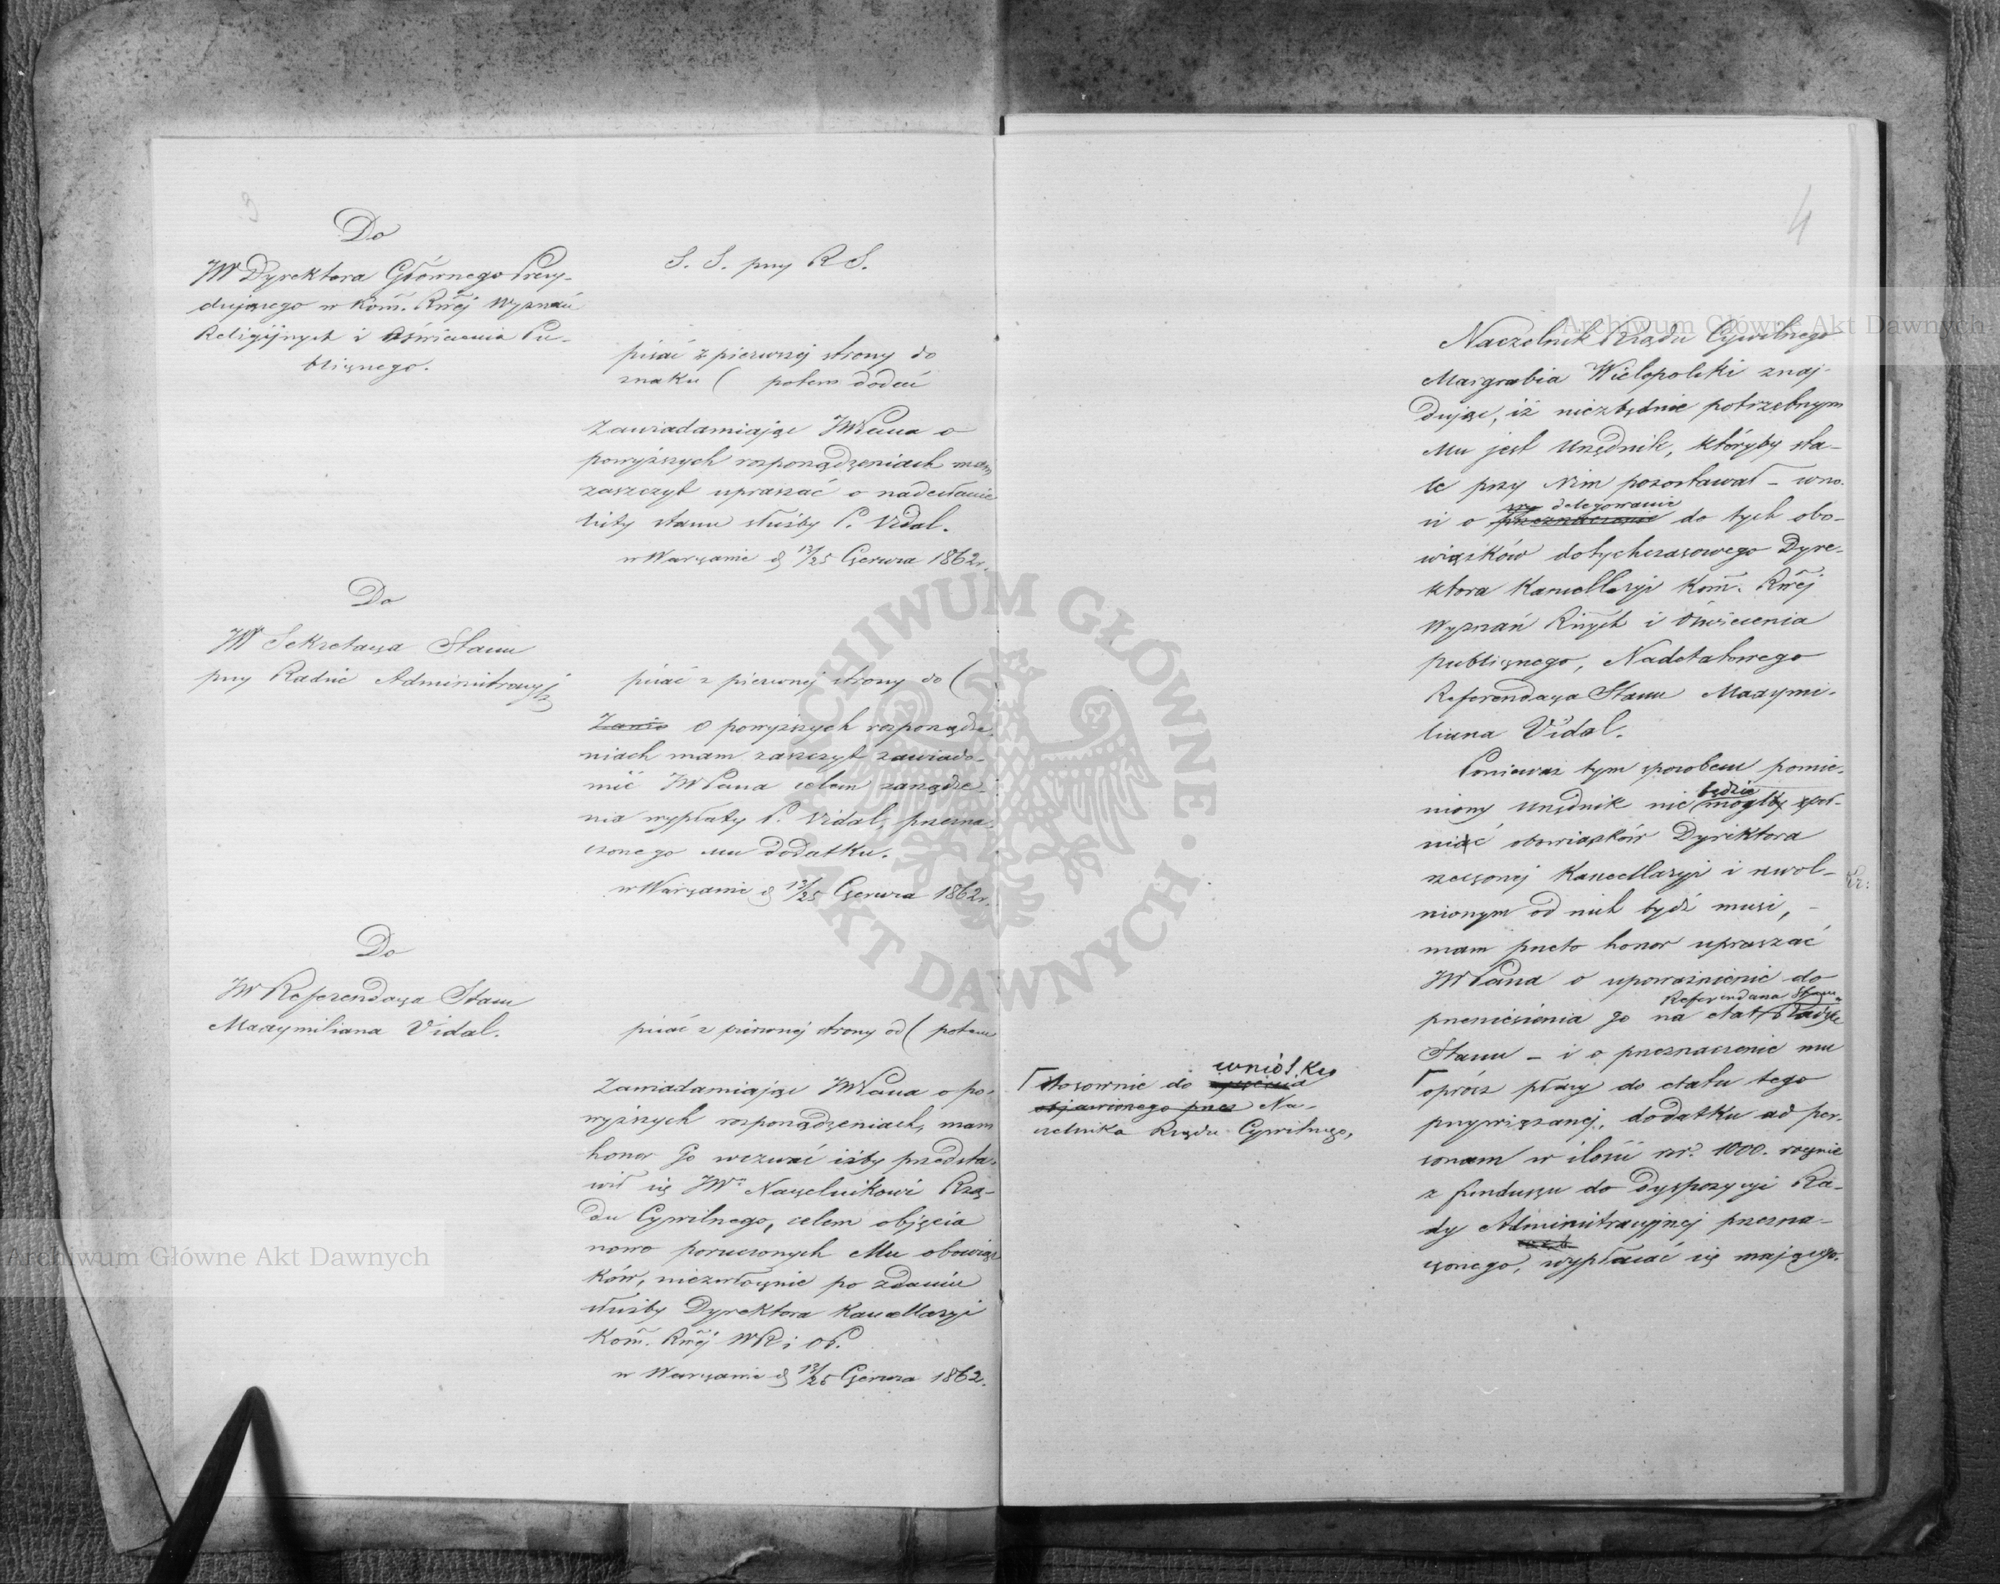 3
Do
JW Dyrektora Głównego Prezy-
dującego w Kom. Rwej Wyznań
Religijnych i Oświecenia Pu-
blicznego.
S. S. przy R S.
pisać z pierwszej strony do
znaku ( potem dodać
Zawiadamiając JWPana o
powyższych rozporządzeniach mam
zaszczyt upraszać o nadesłanie
listy stanu służby P. Vidal.
w Warszawie d 13/25 Czerwca 1862r.
Do
JW Sekretarza Stanu
przy Radzie Administracyj
pisać z pierwszej strony do (
Zawia O powyższych rozporządze-
niach mam zaszczyt zawiado-
mić JWPana celem zarządze-
nia wypłaty P. Vidal, przezna-
czonego mu dodatku.
w Warszawie d 13/25 Czerwca 1862r.
Do
JW Referendarza Stanu
Maxymiliana Vidal.
pisać z pierwszej strony od ( potem
Zawiadamiając JWPana o po-
wyższych rozporządzeniach, mam
honor Go wezwać iżby przedsta-
wił się JW. Naczelnikowi Rzą-
du Cywilnego, celem objęcia
nowo poruczonych Mu obowiąz
ków, niezwłocznie po zdaniu
służby Dyrektora Kancellaryi
Kom. Rwej WR i OP.
w Warszawie d 13/25 Czerwca 1862.
4
Naczelnik Rządu Cywilnego
Margrabia Wielopolski znaj-
dując, iż niezbędnie potrzebnym
Mu jest Urzędnik, któryby sta-
le przy Nim pozostawał – wno-
delegowanie
si o przeznaczenie do tych obo-
wiązków dotychczasowego Dyre-
ktora Kancellaryi Kom. Rwej
Wyznań Rlnych i Oświecenia
publicznego, Nadetatowego
Referendarza Stanu Maxymi-
liana Vidal.
Ponieważ tym sposobem pomie-
będzie
niony Urzędnik nie mógłby speł-
niać obowiązków Dyrektora
rzeczonej Kancellaryi i uwol-
nionym od nich bydź musi, –
mam przeto honor upraszać
JWPana o upoważnienie do
Referendarza Stanu
przeniesienia go na etat Rady
Stanu – i o przeznaczenie mu
oprócz płacy do etatu tego
przywiązanej, dodatku ad per-
sonam w ilości rsr. 1000. rocznie
z funduszu do dyspozycyi Ra-
dy Administracyjnej przezna-
czonego, wypłacać się mającego.
wniosku
stosownie do życzenia
objawionego przez Na-
czelnika Rządu Cywilnego,
Archiwum Główne Akt Dawnych
Archiwum Główne Akt Dawnych
ARCHIWUM GŁÓWNE · AKT DAWNYCH ·